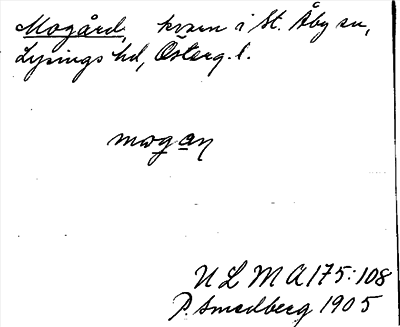 Mogård, kvarn i St. Åby sn,
Lysings hd, Österg. l.
mogan
U L M A 175:108
P. Smedberg 1905